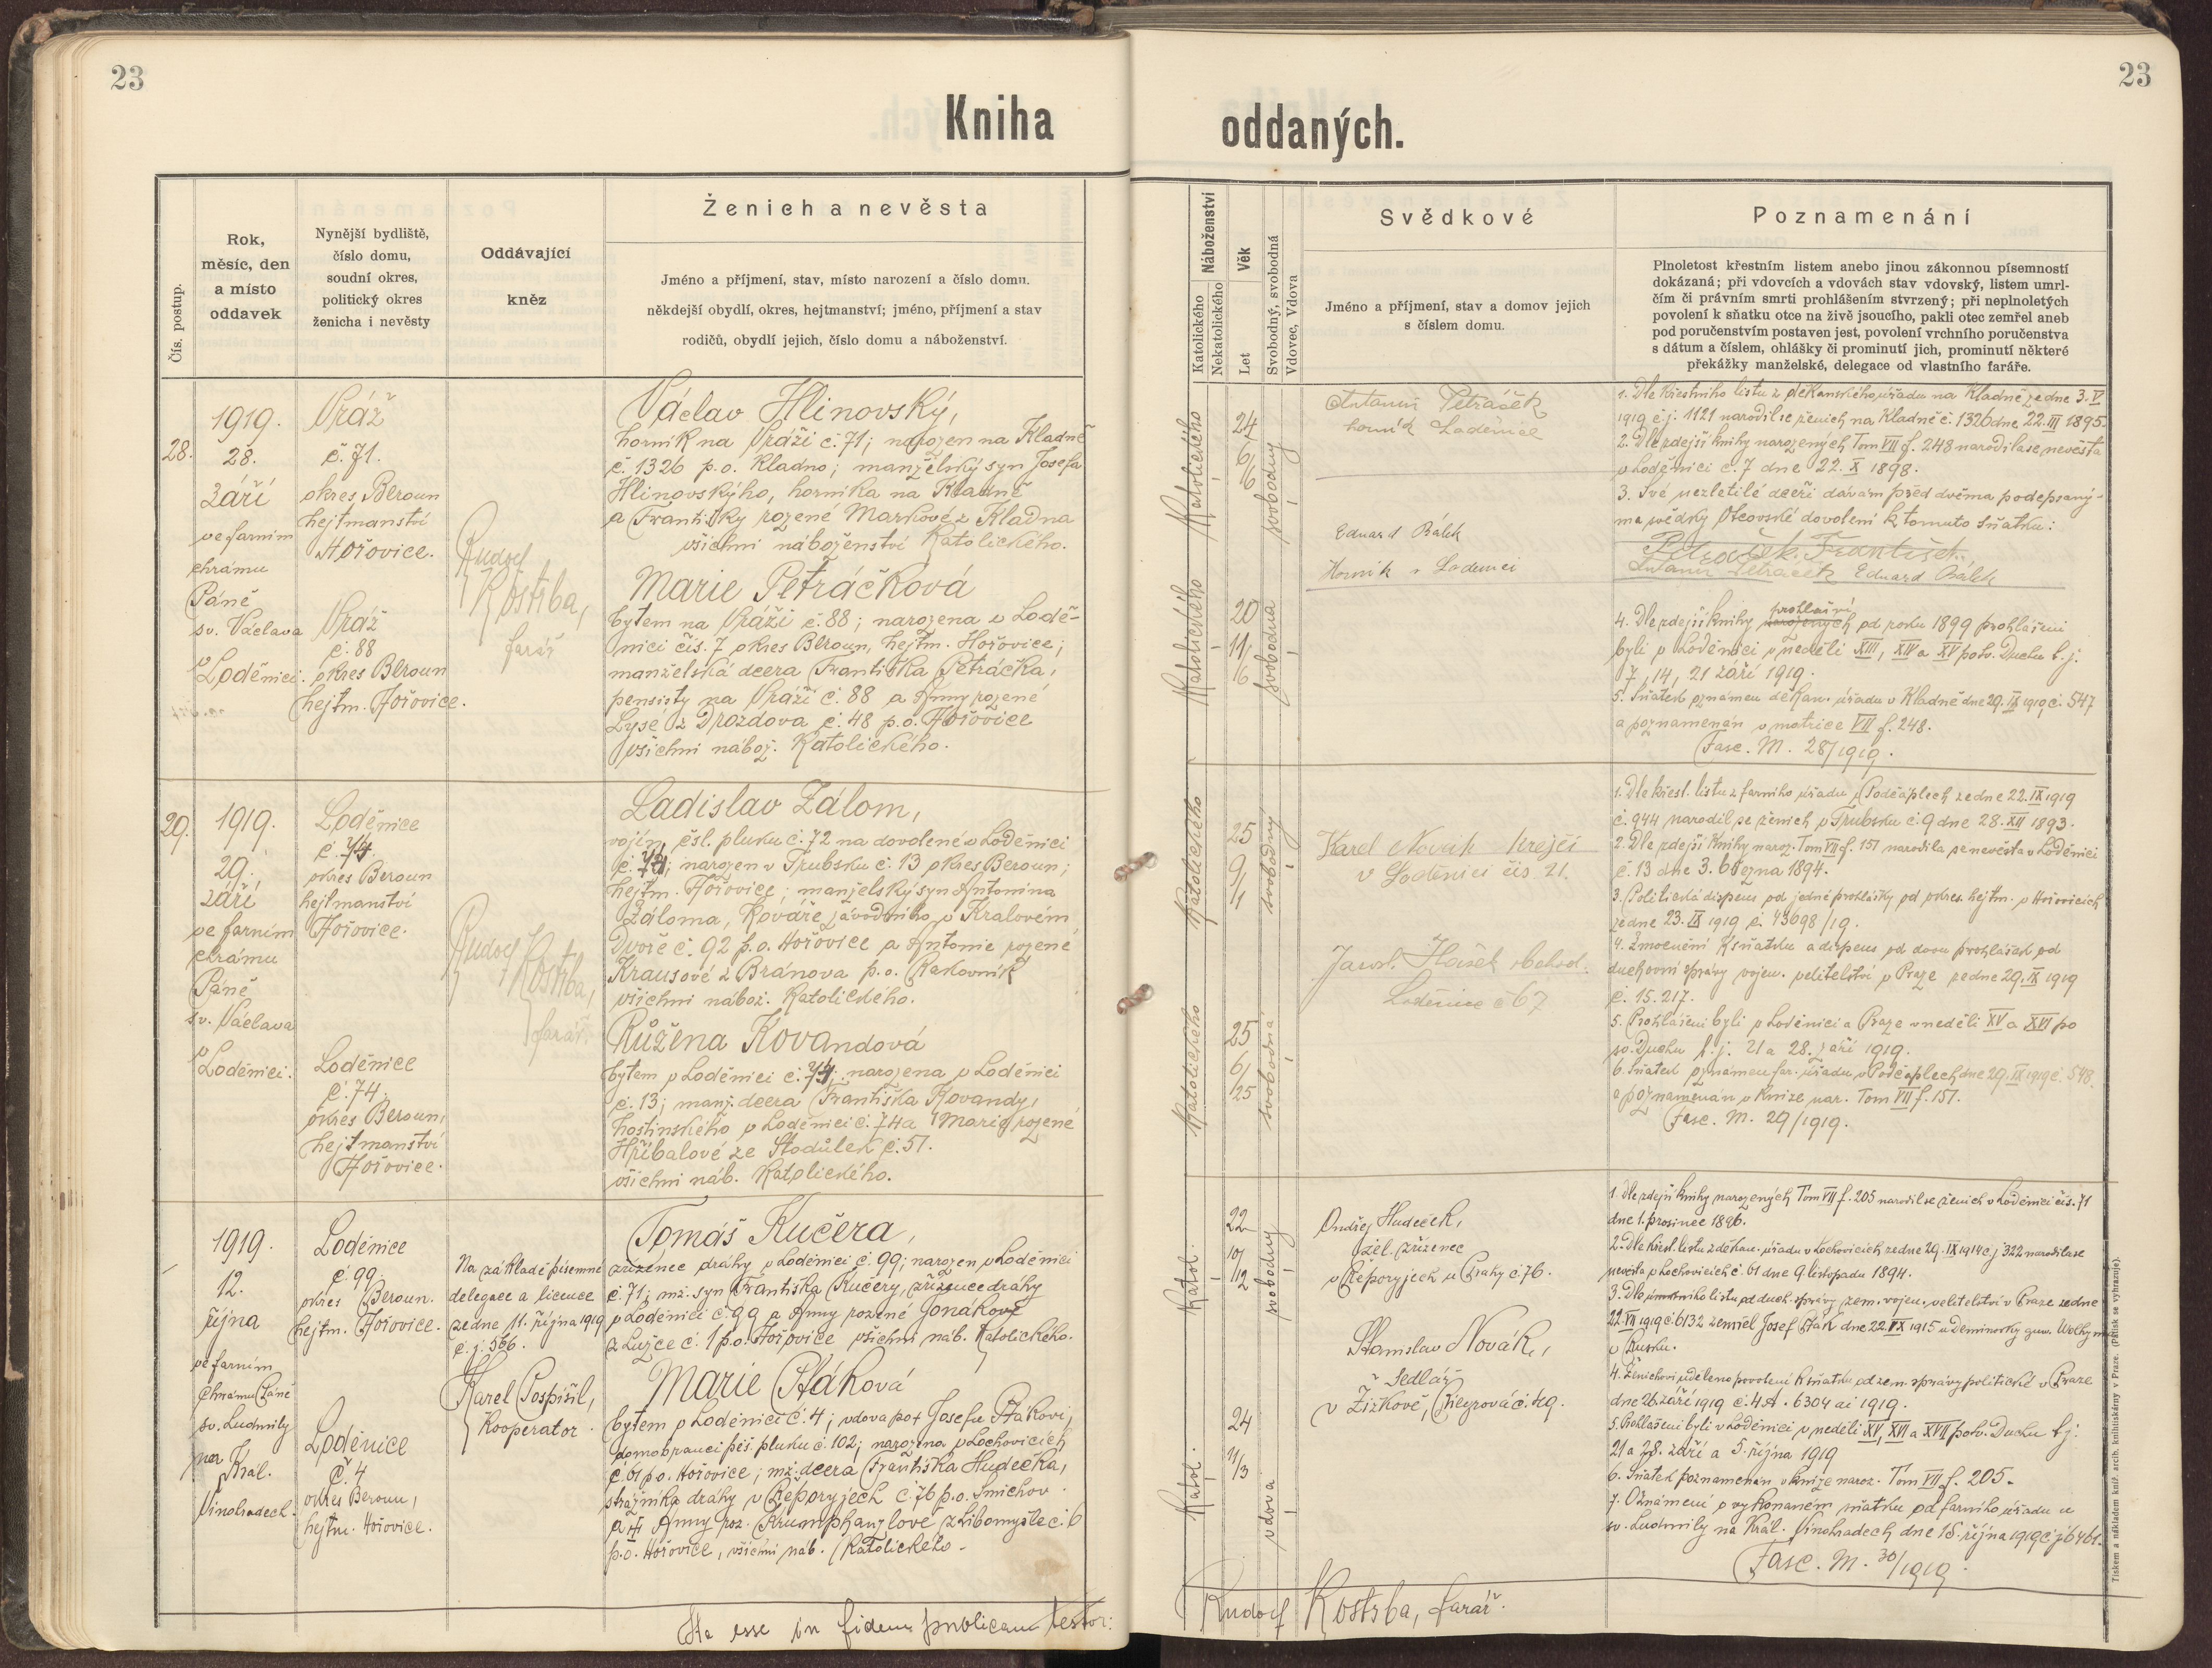 23
23
Kniha
oddaných.
Čís. postup.
Rok,
měsíc, den
a místo
oddavek
Nynější bydliště,
číslo domu,
soudní okres,
politický okres
ženicha i nevěsty
Oddávající
kněz
Ženich a nevěsta
Jméno a příjmení, stav, místo narození a číslo domu.
někdejší obydlí, okres, hejtmanství; jméno, příjmení a stav
rodičů, obydlí jejich, číslo domu a náboženství.
Náboženství
Katolického
Nekatolického
Věk
Let
Svobodný, svobodná
Vdovec, Vdova
Svědkové
Jméno a příjmení, stav a domov jejich
s číslem domu.
Poznamenání
Plnoletost křestním listem anebo jinou zákonnou písemností
dokázaná; při vdovcích a vdovách stav vdovský, listem umrl-
čím či právním smrti prohlášením stvrzený; při neplnoletých
povolení k sňatku otce na živě jsoucího, pakli otec zemřel aneb
pod poručenstvím postaven jest, povolení vrchního poručenstva
s dátum a číslem, ohlášky či prominutí jich, prominutí některé
překážky manželské, delegace od vlastního faráře.
28.
1919.
28.
září
ve farním
chrámu
Páně
sv. Václava
v Loděnici.
Vráž
č. 71.
okres Beroun
hejtmanství
Hořovice.
Vráž
č. 88
okres Beroun
hejtm. Hořovice.
Rudolf
Kostrba,
farář
Václav Hlinovský,
horník na Vráži č. 71; narozen na Kladně
č. 1326 p. o. Kladno; manželský syn Josefa
Hlinovskýho, horníka na Kladně
a Františky rozené Markové z Kladna
všichni náboženství Katolického.
Marie Petráčková
bytem na Vráži č. 88; narozena v Lodě-
nici čís. 7 okres Beroun, hejtm. Hořovice;
manželská dcera Františka Petráčka,
pensisty na Vráži č. 88 a Anny rozené
Lysé z Drozdova č. 48 p. o. Hořovice
všichni nábož. Katolického.
Katolického
24
6/
6
svobodný
Katolického
20
11/
16
svobodna
Antonín Petráček
horník Loděnice
Eduard Bálek
Horník v Lodenici
1. Dle křestního listu z děkanského úřadu na Kladně ze dne 3. V
1919 č.j. 1121 narodil se ženich na Kladně č. 1326 dne 22. III 1895.
2. Dle zdejší knihy narozených Tom VII f. 248 narodila se nevěsta
v Loděnici č. 7 dne 22. X 1898.
3. Své nezletilé dceři dávám před dvěma podepsaný-
ma svědky Otcovské dovolení k tomuto sňatku:
Petráček František
Antonín Petráček Eduard Bálek
prohlašní
4. Dle zdejší knihy narozených od roku 1899 prohlášeni
byli v Loděnici v neděli XIII, XIV a XV po sv. Duchu t. j.
7, 14, 21 září 1919.
5. Sňatek oznámen děkan. úřadu v Kladně dne 29. IX 1919 č. 547
a poznamenán v matrice VII f. 248.
Fasc. M. 28/1919.
29.
1919.
29.
září
ve farním
chrámu
Páně
sv. Václava
v Loděnici.
Loděnice
č. 74
okres Beroun
hejtmanství
Hořovice.
Loděnice
č. 74.
okres Beroun,
hejtmanství
Hořovice.
Rudolf
Kostrba,
farář.
Ladislav Zálom,
vojín čsl. pluku č. 72 na dovolené v Loděnici
č. 74; narozen v Trubsku č. 13 okres Beroun;
hejtm. Hořovice; manželský syn Antonína
Záloma, Kováře závodního v Kralovém
Dvoře č. 92 p. o. Hořovice a Antonie rozené
Krausové z Branova p. o. Rakovník
všichni nábož. Katolického.
Růžena Kovandová
bytem v Loděnici č. 74; narozena v Loděnici
č. 13; manž. dcera Františka Kovandy,
hostinského v Loděnici č. 74 a Marie rozené
Hříbalové ze Stodůlek č. 57.
všichni náb. Katolického.
Katolického
25
9/
1
svobodný
Katolického
25
6/
25
svobodná
Karel Novák krejčí
v Loděnici čís 21.
Jarosl. Hašek obchod.
Loděnice č 67
1. Dle křest. listu z farního úřadu v Počáplech ze dne 22. IX 1919
č. 944 narodil se ženich v Trubsku č. 9 dne 28. XII 1893.
2. Dle zdejší Knihy naroz. Tom VII f. 151 narodila se nevěsta v Loděnici
č. 13 dne 3. března 1894.
3. Politická dispens od jedné prohlášky od okres. hejtm. v Hořovicích
ze dne 23. IX 1919 č. 43698/19.
4. Zmocnění k sňatku a dispens od dvou prohlášek od
duchovní správy vojen. velitelství v Praze ze dne 29. IX 1919
č. 15.217.
5. Prohlášeni byli v Loděnici a Praze v neděli XV a XVI po
sv. Duchu t. j. 21 a 28. září 1919.
6. Sňatek oznámen far. úřadu v Počáplech dne 29. IX 1919 č. 548.
a poznamenán v knize nar. Tom VII f. 151.
Fasc. M. 29/1919.
1919.
12.
října
ve farním
chrámu Páně
sv. Ludmily
na Král.
Vinohradech.
Loděnice
č. 99.
okres Beroun.
hejtm. Hořovice.
Loděnice
č. 4
okres Beroun,
hejtm. Hořovice.
Na základě písemné
delegace a licence
ze dne 11. října 1919
č. j. 566.
Karel Pospíšil,
Kooperator.
Tomáš Kučera,
zřízenec dráhy v Loděnici č. 99; narozen v Loděnici
č. 71; mž. syn Františka Kučery, zřízence dráhy
v Loděnici č. 99 a Anny rozené Jonákové
z Lužce č. 1 p. o. Hořovice všichni náb. Katolického.
Marie Ptáková
bytem v Loděnici č. 4; vdova po † Josefu Ptákovi,
domobranci pěš. pluku č. 102; narozena v Lochovicích
č. 61 p. o. Hořovice; mž. dcera Františka Hudečka,
strážníka dráhy v Řeporyjech č. 76 p. o. Smíchov
a Anny roz. Krumphanzlové z Libomyšle č. 6
p. o. Hořovice, všichni náb. Katolického.
Katol.
22
10/
12
svobodný
Katol.
24
11/
3
vdova
Ondřej Hudeček,
žel. zřízenec
v Řeporyjech u Prahy č. 76.
Stanislav Novák,
sedlář
v Žižkově, č. 49.
1. Dle zdejší knihy narozených Tom VII f. 205 narodil se ženich v Loděnici čís. 71
dne 1. prosince 1896.
2. Dle křest. listu z děkan. úřadu v Lochovicích ze dne 29. IX 1914 č. j. 322 narodila se
nevěsta v Lochovicích č. 61 dne 9. listopadu 1894.
3. Dle úmrtního listu od duch. správy zem. vojen. velitelství v Praze ze dne
22. VII 1919 č. 6132 zemřel Josef Pták dne 22. IX 1915 u
v Rusku.
4. Ženichovi uděleno povolení k sňatku od zem. správy politické v Praze
dne 26. září 1919 č. 4A. 6304 ai 1919.
5. Prohlášeni byli v Loděnici v neděli XV, XVI a XVII po sv. Duchu t. j.
21 a 28. září a 5. října 1919
6. Sňatek poznamenán v knize naroz. Tom VII f. 205.
7. Oznámení o vykonaném sňatku od farního úřadu u
sv. Ludmily na Král. Vinohradech dne 15. října 1919
Fasc. M. 30/1919.
Ita esse in fidem publicam testor:
Rudolf Kostrba, farář.
Tiskem a nákladem kníž. arcib. knihtiskárny v Praze. (Přetisk se vyhrazuje).